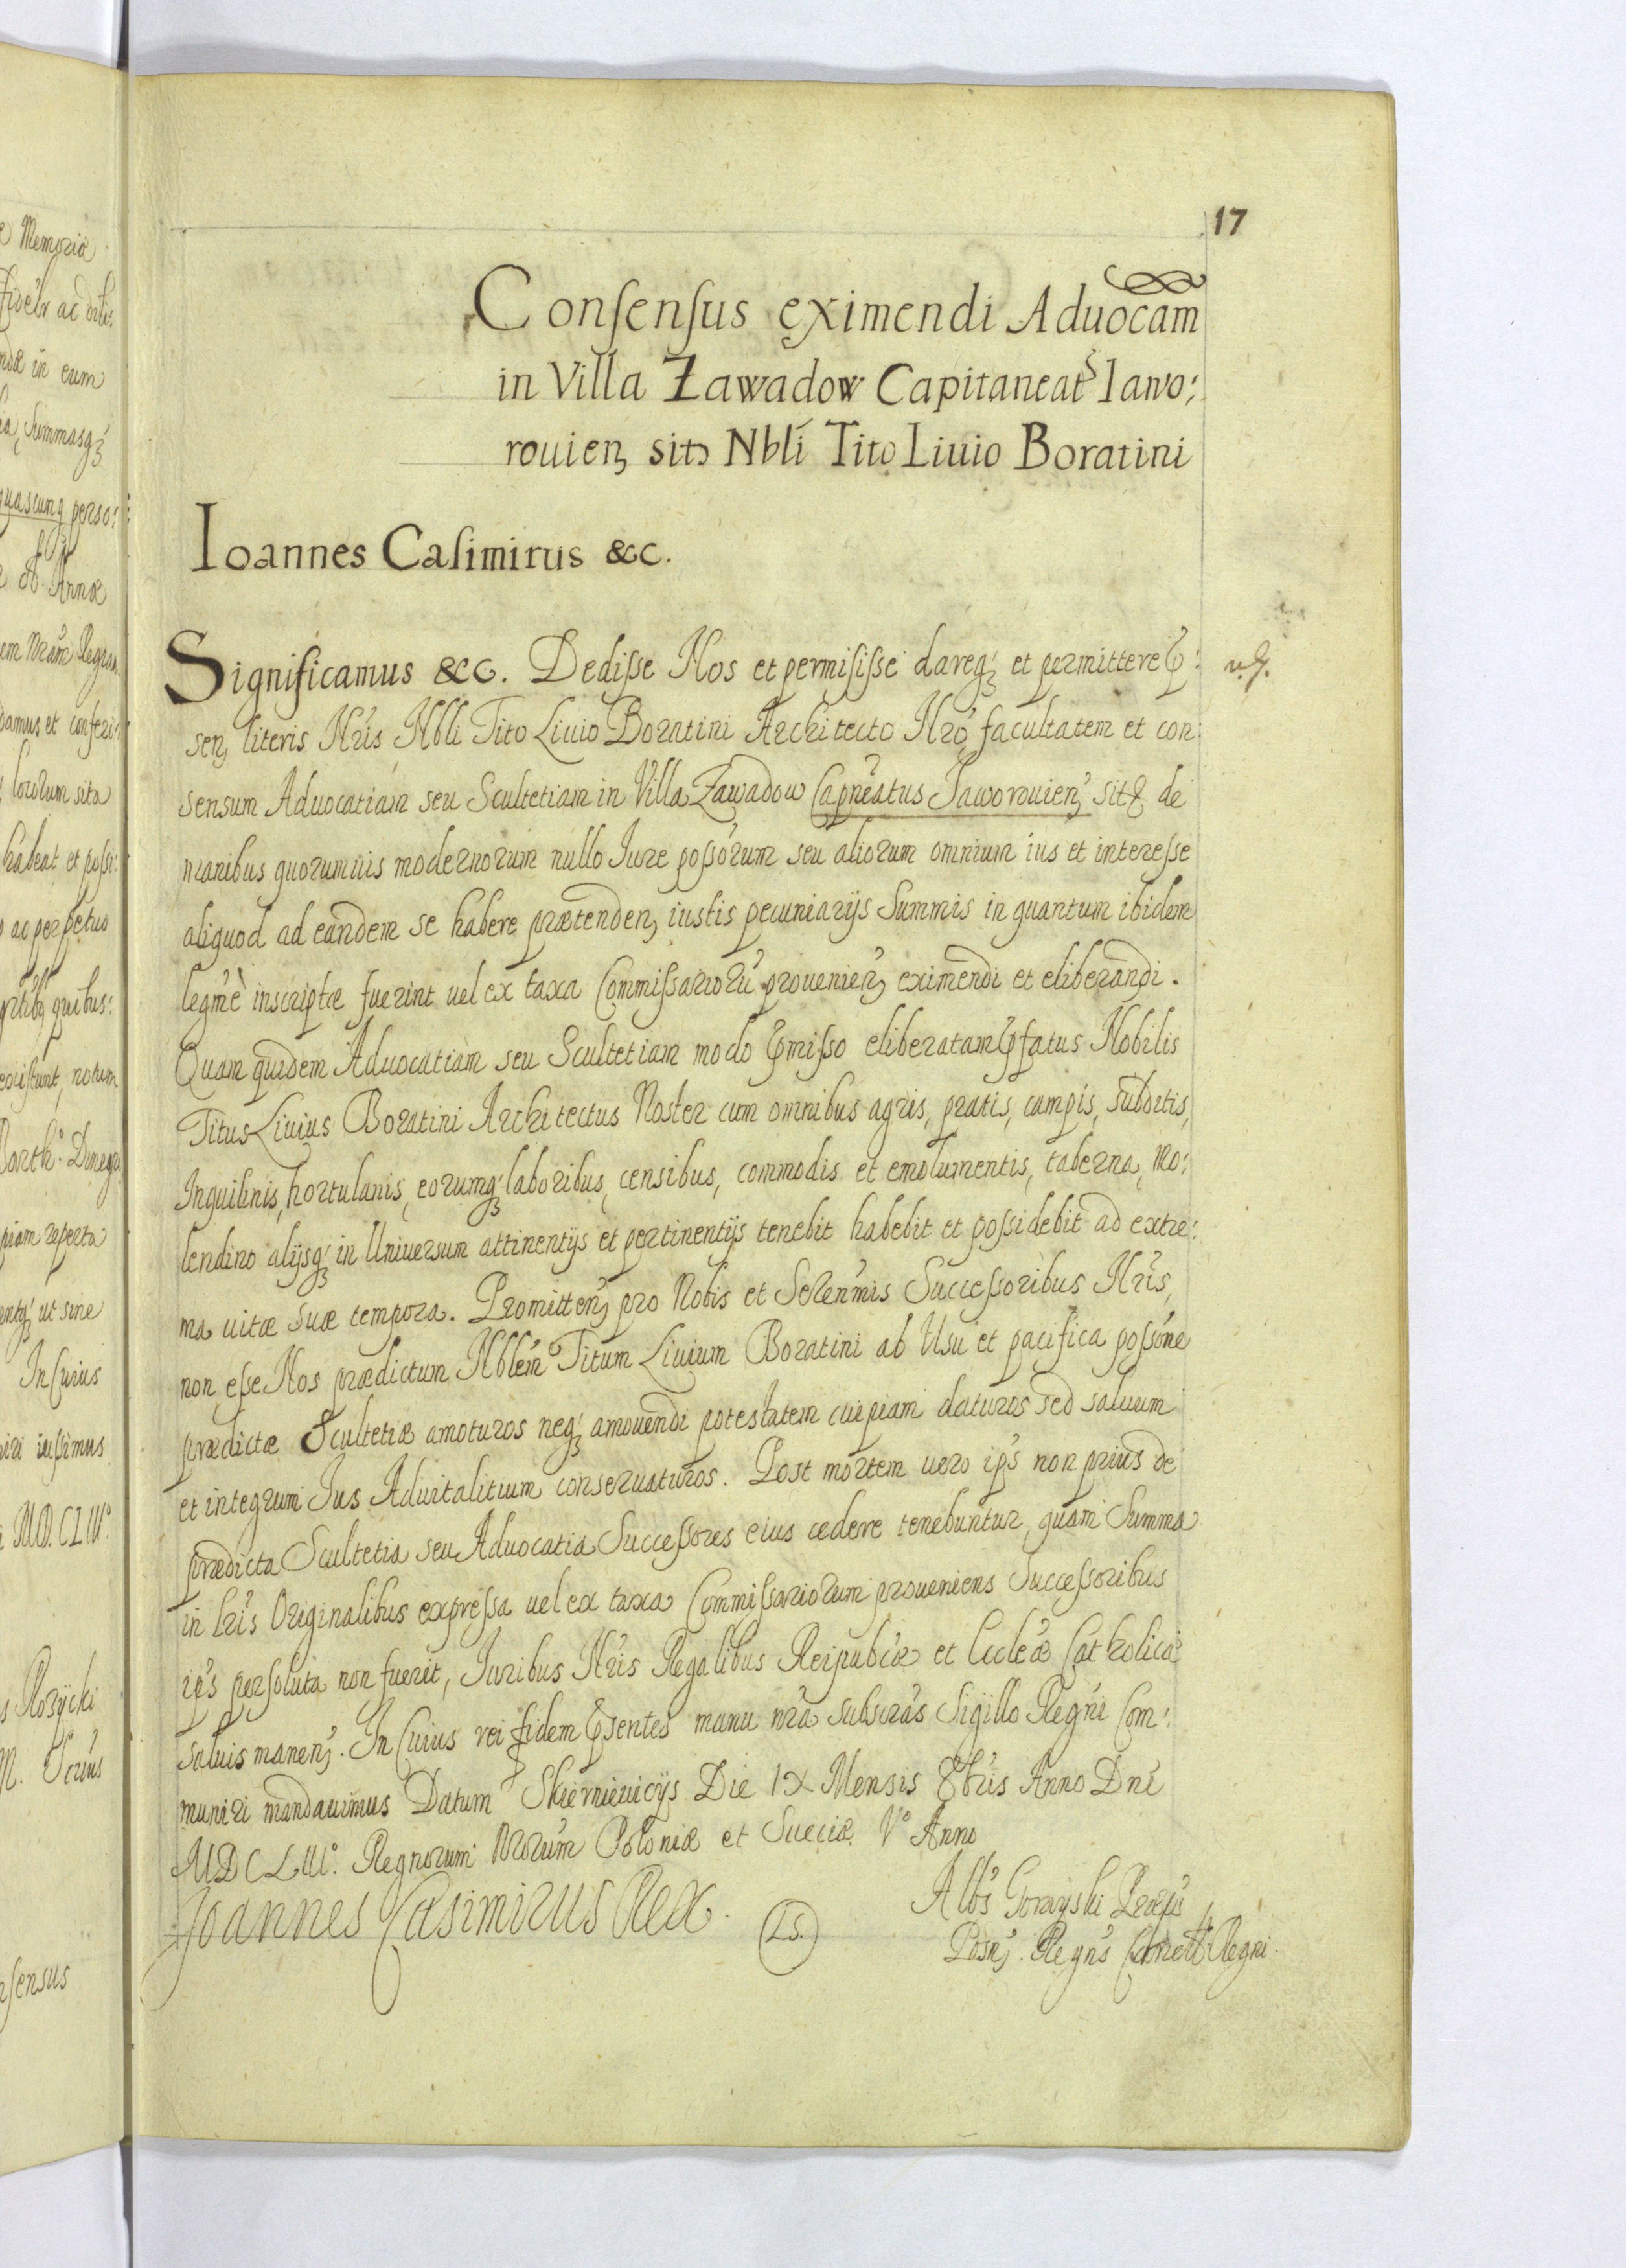 17
Consensus eximendi Aduocam̃
in Villa Zawadow Capitaneat9 Iawo:
rouien̨ sitæ Nbli Tito Liuio Boratini
Ioannes Casimirus &c.
Significamus &c. Dedisse Nos et permisisse dareq́ꝫ et permittere P:
senꝫ literis Nr̃is Nbli Tito Liuio Boratini Architecto Nrõ, facultatem et con:
sensum Aduocatiam seu Scultetiam in Villa Zawadow Capneatus Jaworouienꝫ sitã de
manibus quorumuis modernorum nullo Iure possorum seu aliorum omnium ius et interesse
aliquod ad eandem se habere prætendenꝫ iustis pecuniarijs Summis in quantum ibidem
legme inscriptæ fuerint uel ex taxa Commissariorũ prouenienꝫ eximendi et eliberandi.
Quam quidem Aduocatiam seu Scultetiam modo Pmisso eliberatam Pfatus Nobilis
Titus Liuius Boratini Architectus Noster cum omnibus agris, pratis, campis, subditis,
Inquilinis, hortulanis, eorumq́ꝫ laboribus, censibus, commodis et emolumentis, taberna, Mo:
lendino alijsq́ꝫ in Uniuersum attinentijs et pertinentijs tenebit habebit et possidebit ad extre:
ma uitæ suæ tempora. Promittenꝫ pro Nobis et Serenmis Successoribus Nr̃is,
non esse Nos prædictum Nblem Titum Liuium Boratini ab Usu et pacifica possone
prædictæ Scultetiæ amoturos neq́ꝫ amouendi potestatem cuipiam daturos sed saluum
et integrum Ius Aduitalitium conseruaturos. Post mortem uero ip̃s non prius de
prædicta Scultetia seu Aduocatia Successores eius cedere tenebuntur, quam Summa
in lr̃is Originalibus expressa uel ex taxa Commissariorum proueniens Successoribus
ip̃s persoluta non fuerit, Iuribus Nr̃is Regalibus Reipubcæ et Eccleæ Catholicæ
saluis manenꝫ. In Cuius rei fidem Psentes manu nrã subscrãs Sigillo Regni Com:
muniri mandauimus Datum Skierniewicijs Die IX Mensis 8br̃is Anno Dni
MDCLIIIº. Regnorum Nrorum Poloniæ et Sueciæ Vº Anno
Joannes Casimirus Rex.
LS.
Posnꝫ Regns Regni.